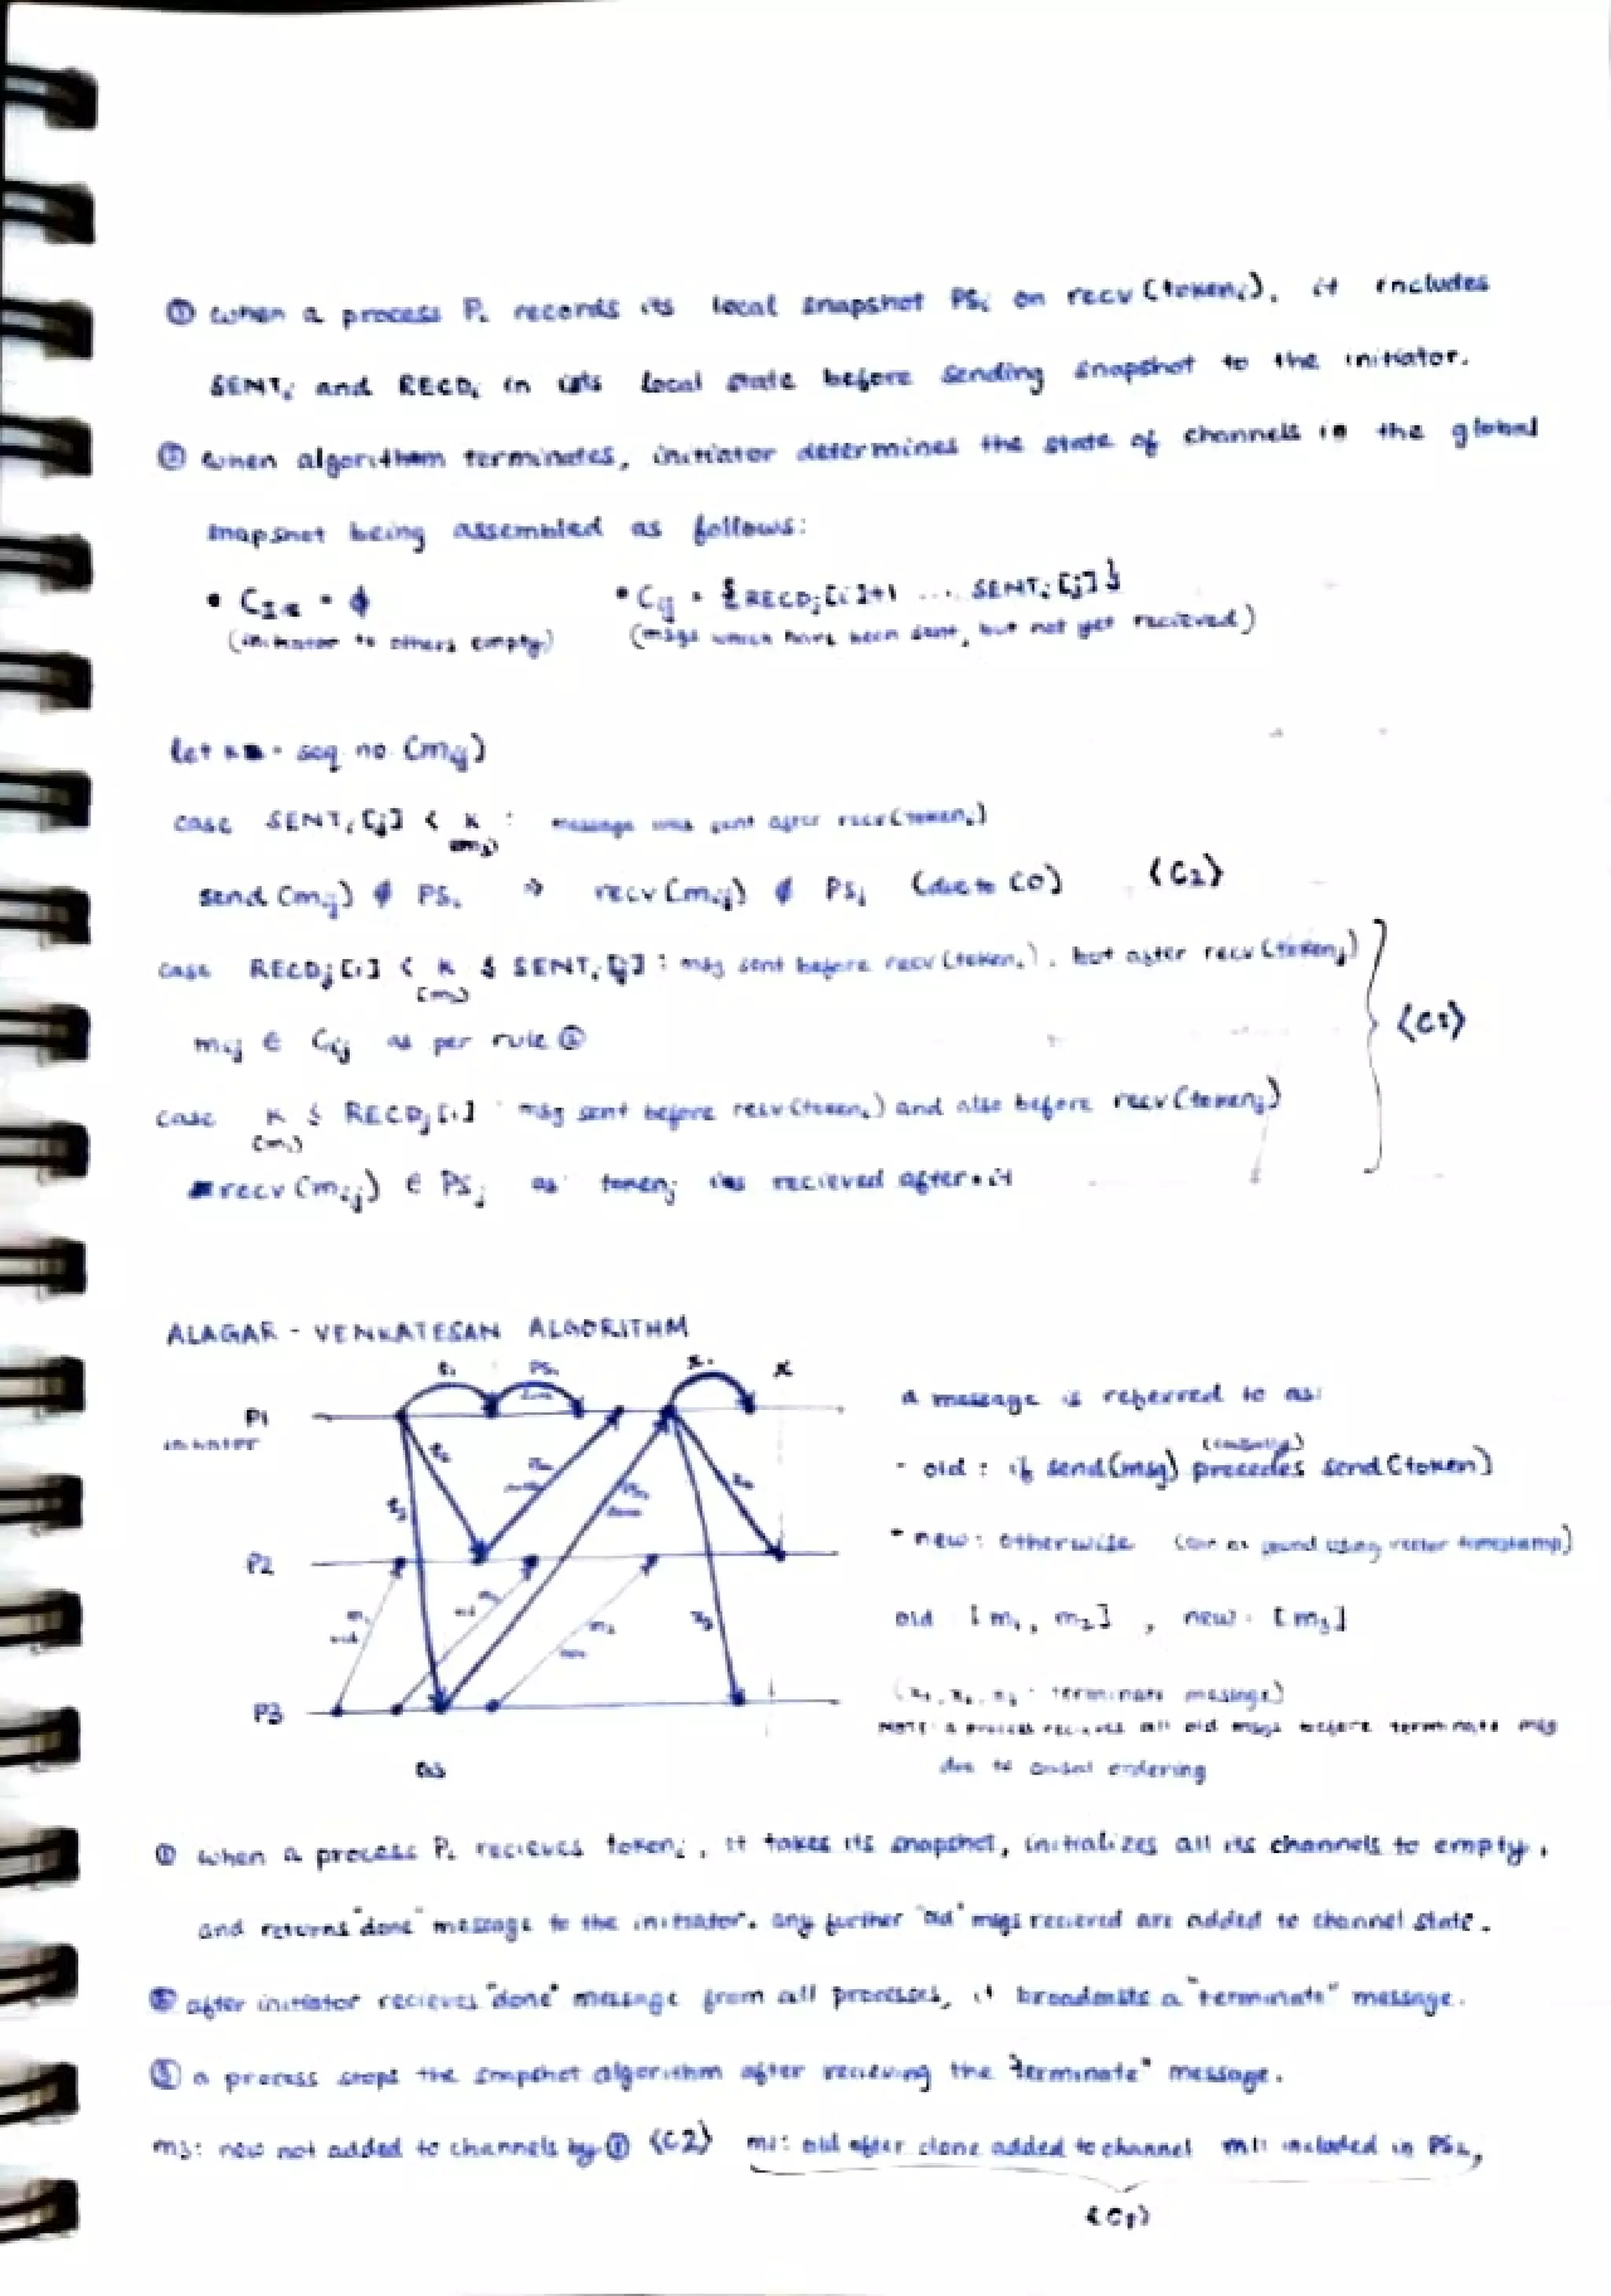 ① when a process Pi records its local snapshot PSi on recv (tokeni), it includes
SENTi and RECDi in its local state before sending snapshot to the initiator.
② when algorithm terminates, initiator determines the state of channels in the global
snapshot being assembled as follows:
• CIi = ϕ • Cij = {RECDj[i]+1 ... SENTi[j]}
(initiator to others empty) (msgs which have been sent, but not yet recieved)
let k = seq no (mij)
case SENTi[j] < k : message was sent after recv(tokeni)
(mij)
send (mij) ∉ PSi ⇒ recv (mij) ∉ PSj (due to CO) <C2>
case RECDj[i] < k ≤ SENTi[j] : msg sent before recv (tokeni), but after recv (tokenj)
mij ∈ Cij as per rule ② <C1>
case k ≤ RECDj[i] : msg sent before recv (tokeni) and also before recv (tokenj)
recv (mij) ∈ PSj as tokenj was recieved after it
ALAGAR - VENKATESAN ALGORITHM
t1 PS1 x1 x
done
P1
initiator
t2
t3
x2
P2
m1
old
old
m3
new
x3
P3
a message is referred to as:
(causally)
- old : if send(msg) precedes send(token)
- new : otherwise found using vector timestamp)
old [m1, m2] , new : [m3]
(x1, x2, x3 - terminate message)
NOTE: a process recieves all old msgs before terminate msg
due to causal ordering
① when a process Pi recieves tokeni, it takes its snapshot, initializes all its channels to empty,
and returns "done" message to the initiator. any further "old" msgs recieved are added to channel state.
② after initiator recieves "done" message from all processes, it broadcasts a "terminate" message.
③ a process stops the snapshot algorithm after recieving the "terminate" message.
m3: new not added to channels by ① <C2> m2: old after done added to channel m1: included in PS2,
<C1>